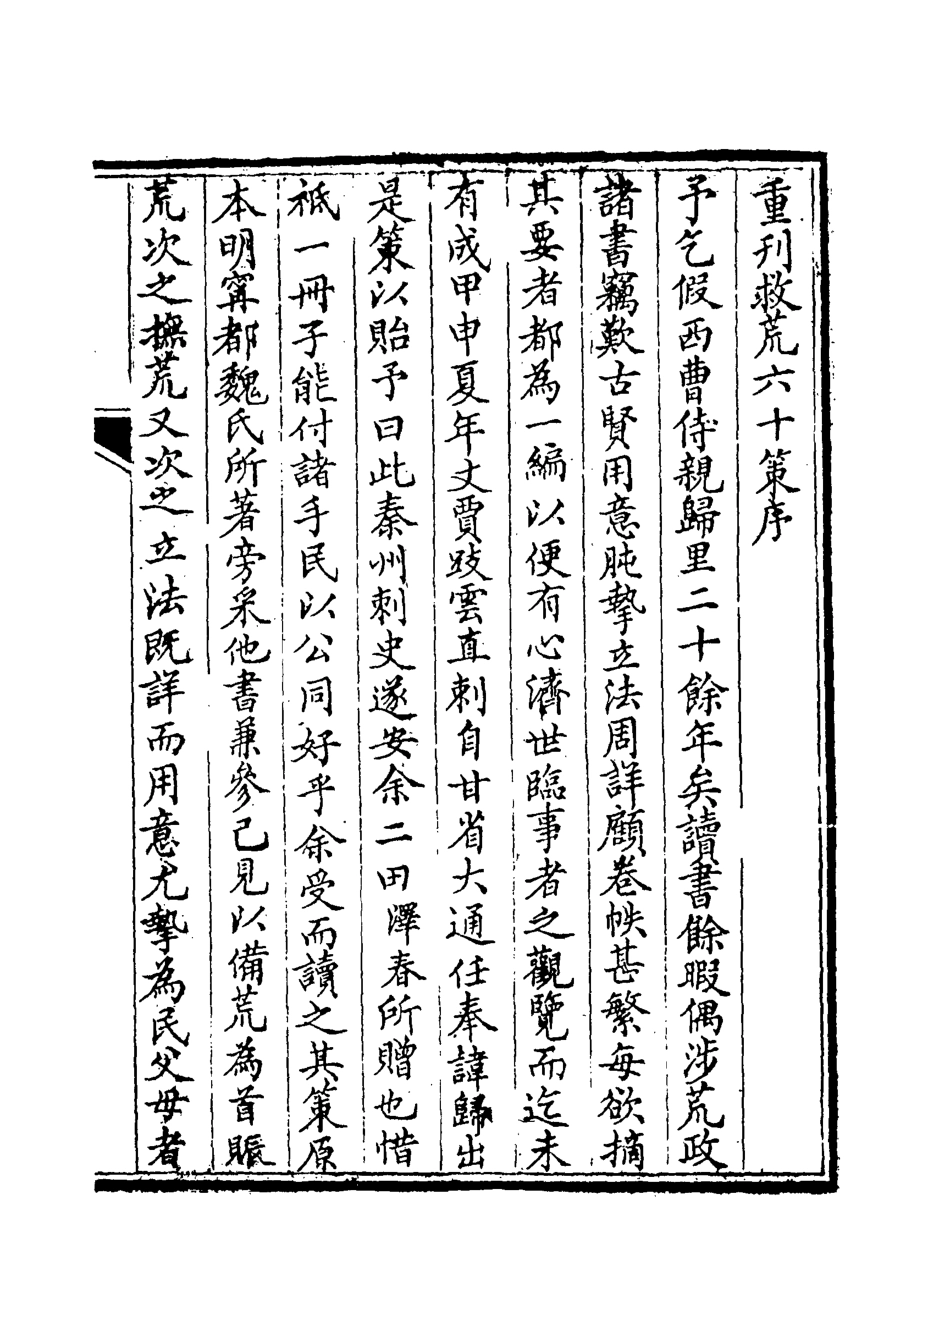 重刊救荒六十策序
予乞假西曹侍親歸里二十餘年矣讀書餘暇偶涉荒政
諸書竊歎古賢用意肫摯立法周詳顧卷帙甚繁每欲摘
其要者都為一編以便有心濟世臨事者之觀覽而迄未
有成甲申夏年丈賈跂雲直刺自甘省大通任奉諱歸出
是策以貽予曰此秦州刺史遂安余二田澤春所贈也惜
祗一冊子能付諸手民以公同好乎余受而讀之其策原
本明甯都魏氏所著旁采他書兼參己見以備荒為首賑
荒次之撫荒又次之立法既詳而用意尤摯為民父母者